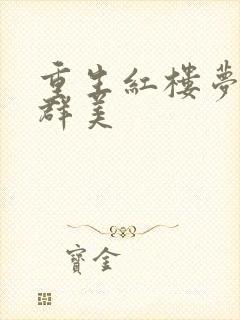 重生紅樓夢
群美
寶金